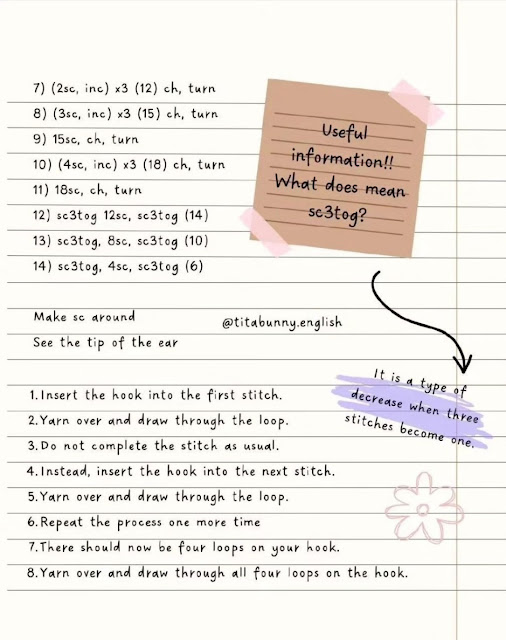 7) (2sc, inc) x3 (12) ch, turn
8) (3sc, inc) x3 (15) ch, turn
9) 15sc, ch, turn
10) (4sc, inc) x3 (18) ch, turn
11) 18sc, ch, turn
12) sc3tog 12sc, sc3tog (14)
13) sc3tog, 8sc, sc3tog (10)
14) sc3tog, 4sc, sc3tog (6)
Useful
information!!
What does mean
sc3tog?
Make sc around
See the tip of the ear
@titabunny.english
It is a type of
decrease when three
stitches become one.
1.Insert the hook into the first stitch.
2.Yarn over and draw through the loop.
3.Do not complete the stitch as usual.
4.Instead, insert the hook into the next stitch.
5.Yarn over and draw through the loop.
6.Repeat the process one more time
7.There should now be four loops on your hook.
8.Yarn over and draw through all four loops on the hook.